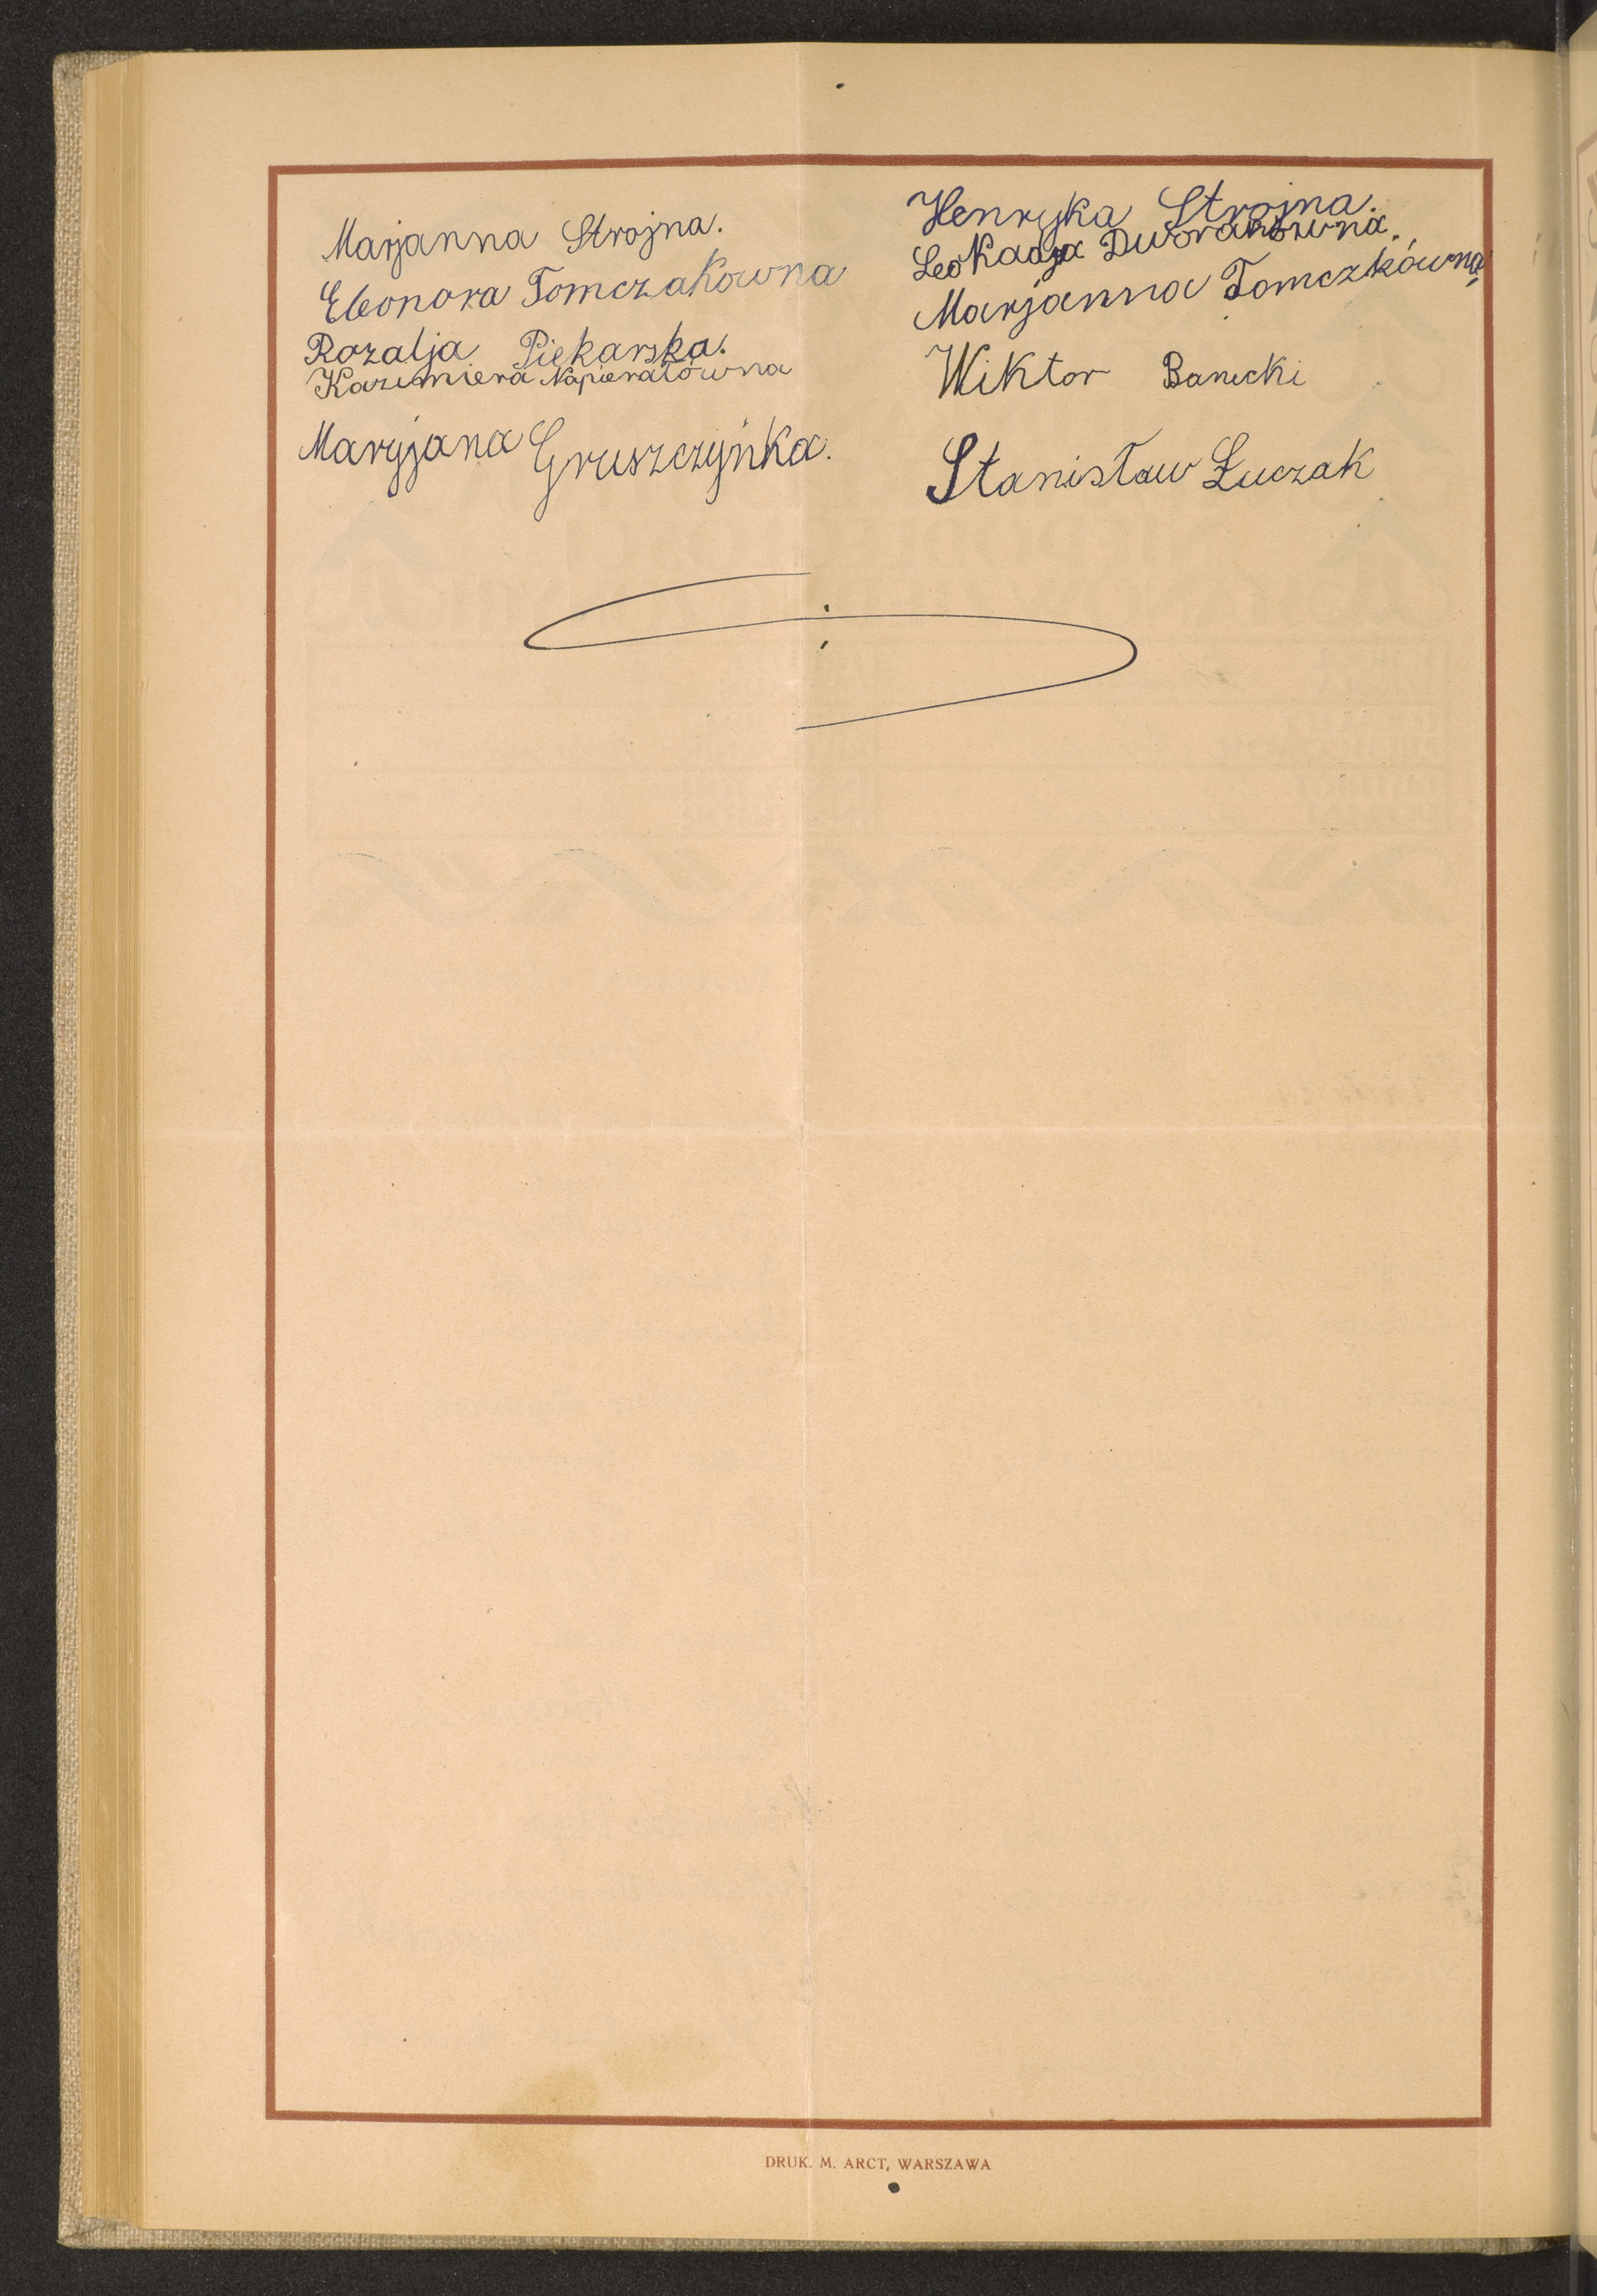 Marjanna Strojna.
Eleonora Tomczakówna
Rozalja Piekarska.
Kazimiera Napierałówna
Maryjana Gruszczyńka.
Henryka Strojna.
Leokadja Dworakówna.
Marjanna Tomczkówna
Wiktor Banecki
Stanisław Łuczak
DRUK. M. ARCT, WARSZAWA